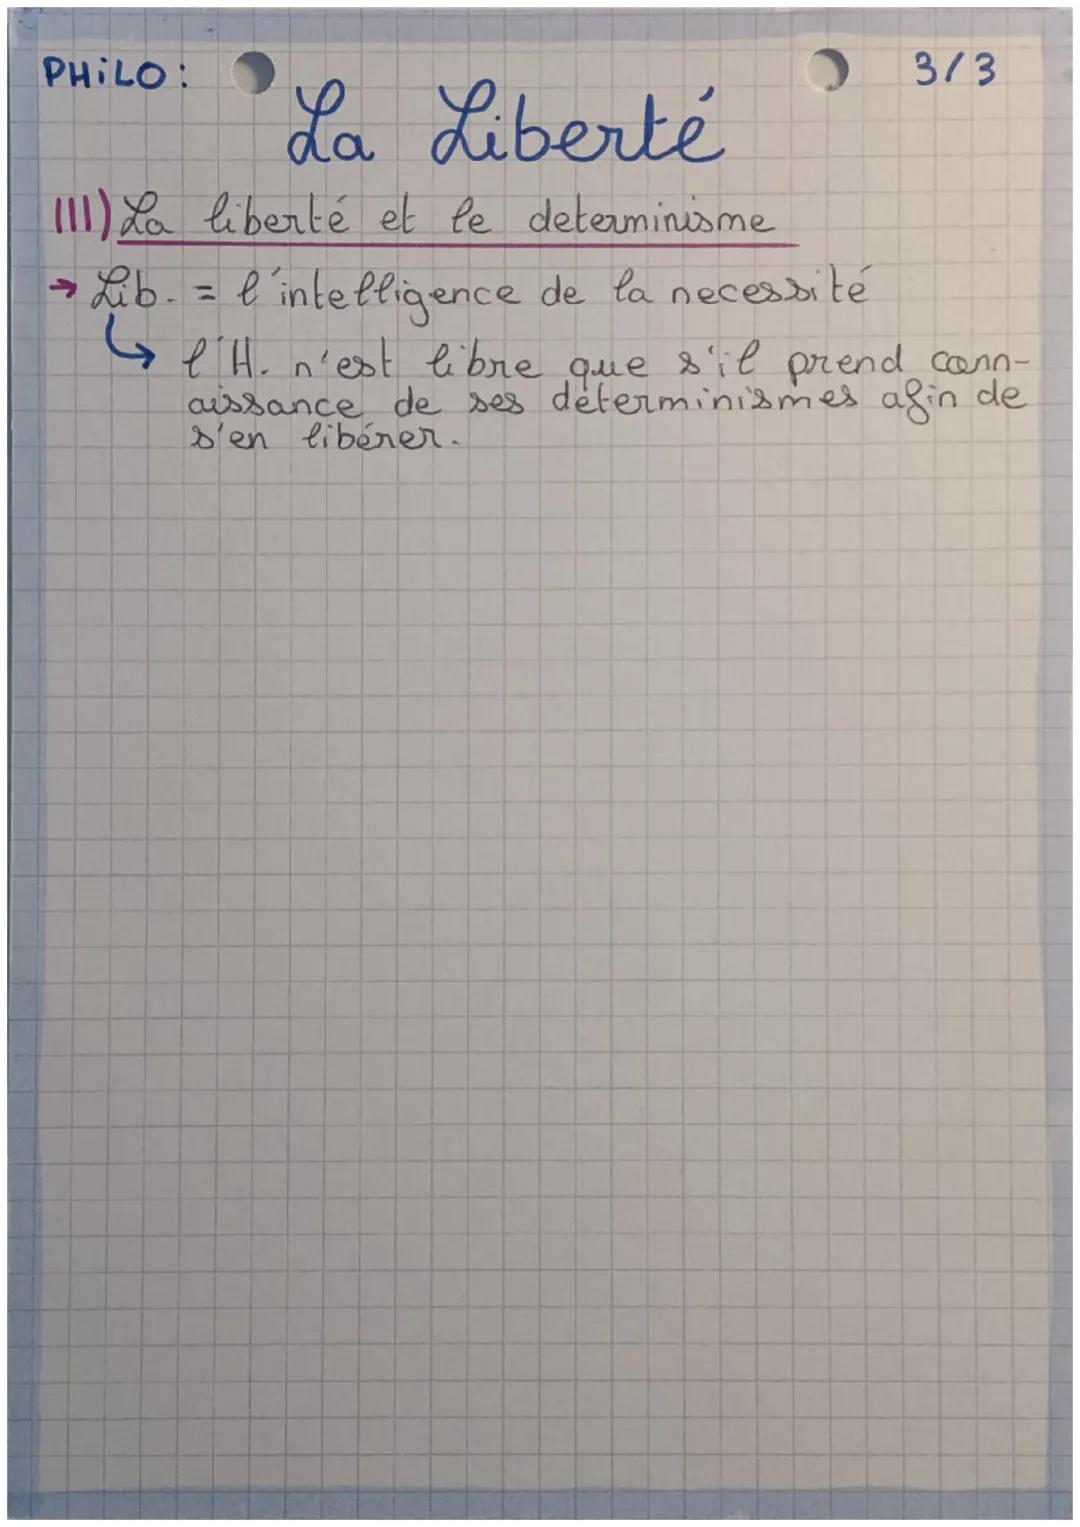 PHiLO:
3/3
La Liberté
III) La liberté et le determinisme
→ Lib. = l'intelligence de la necessité
↳ l'H. n'est libre que s'il prend conn-
aissance de ses déterminismes afin de
s'en libérer.